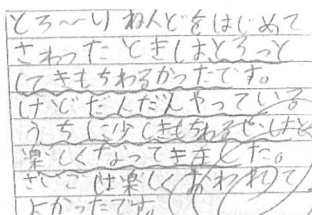 とろ〜りねんどをはじめて
さわったときはとろっと
してきもちわるかったです。
けどだんだんやっている
うちに少しきもちわるいけど
楽しくなってきました。
さいごは楽しくおわれて
よかったです。